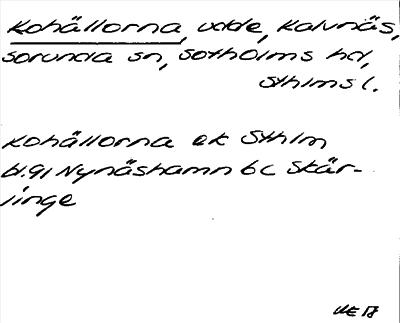 Kohällorna, udde, Kalvnäs,
Sorunda sn, Sotholms hd,
Sthlms l.
Kohällorna ek Sthlm
bl.91 Nynäshamn 6c Skär-
linge